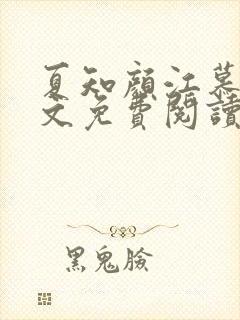 夏知顏江慕
文免費閱讀
黑鬼臉